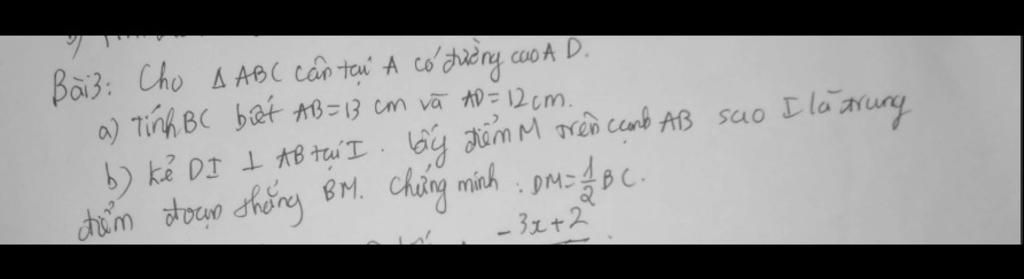 Bài 3: Cho Δ ABC cân tại A có đường cao AD.
a) Tính BC biết AB = 13 cm và AD = 12 cm.
b) Kẻ DI ⊥ AB tại I. Lấy điểm M trên cạnh AB sao I là trung
điểm đoạn thẳng BM. Chứng minh: DM = 1/2 BC.
-3x+2